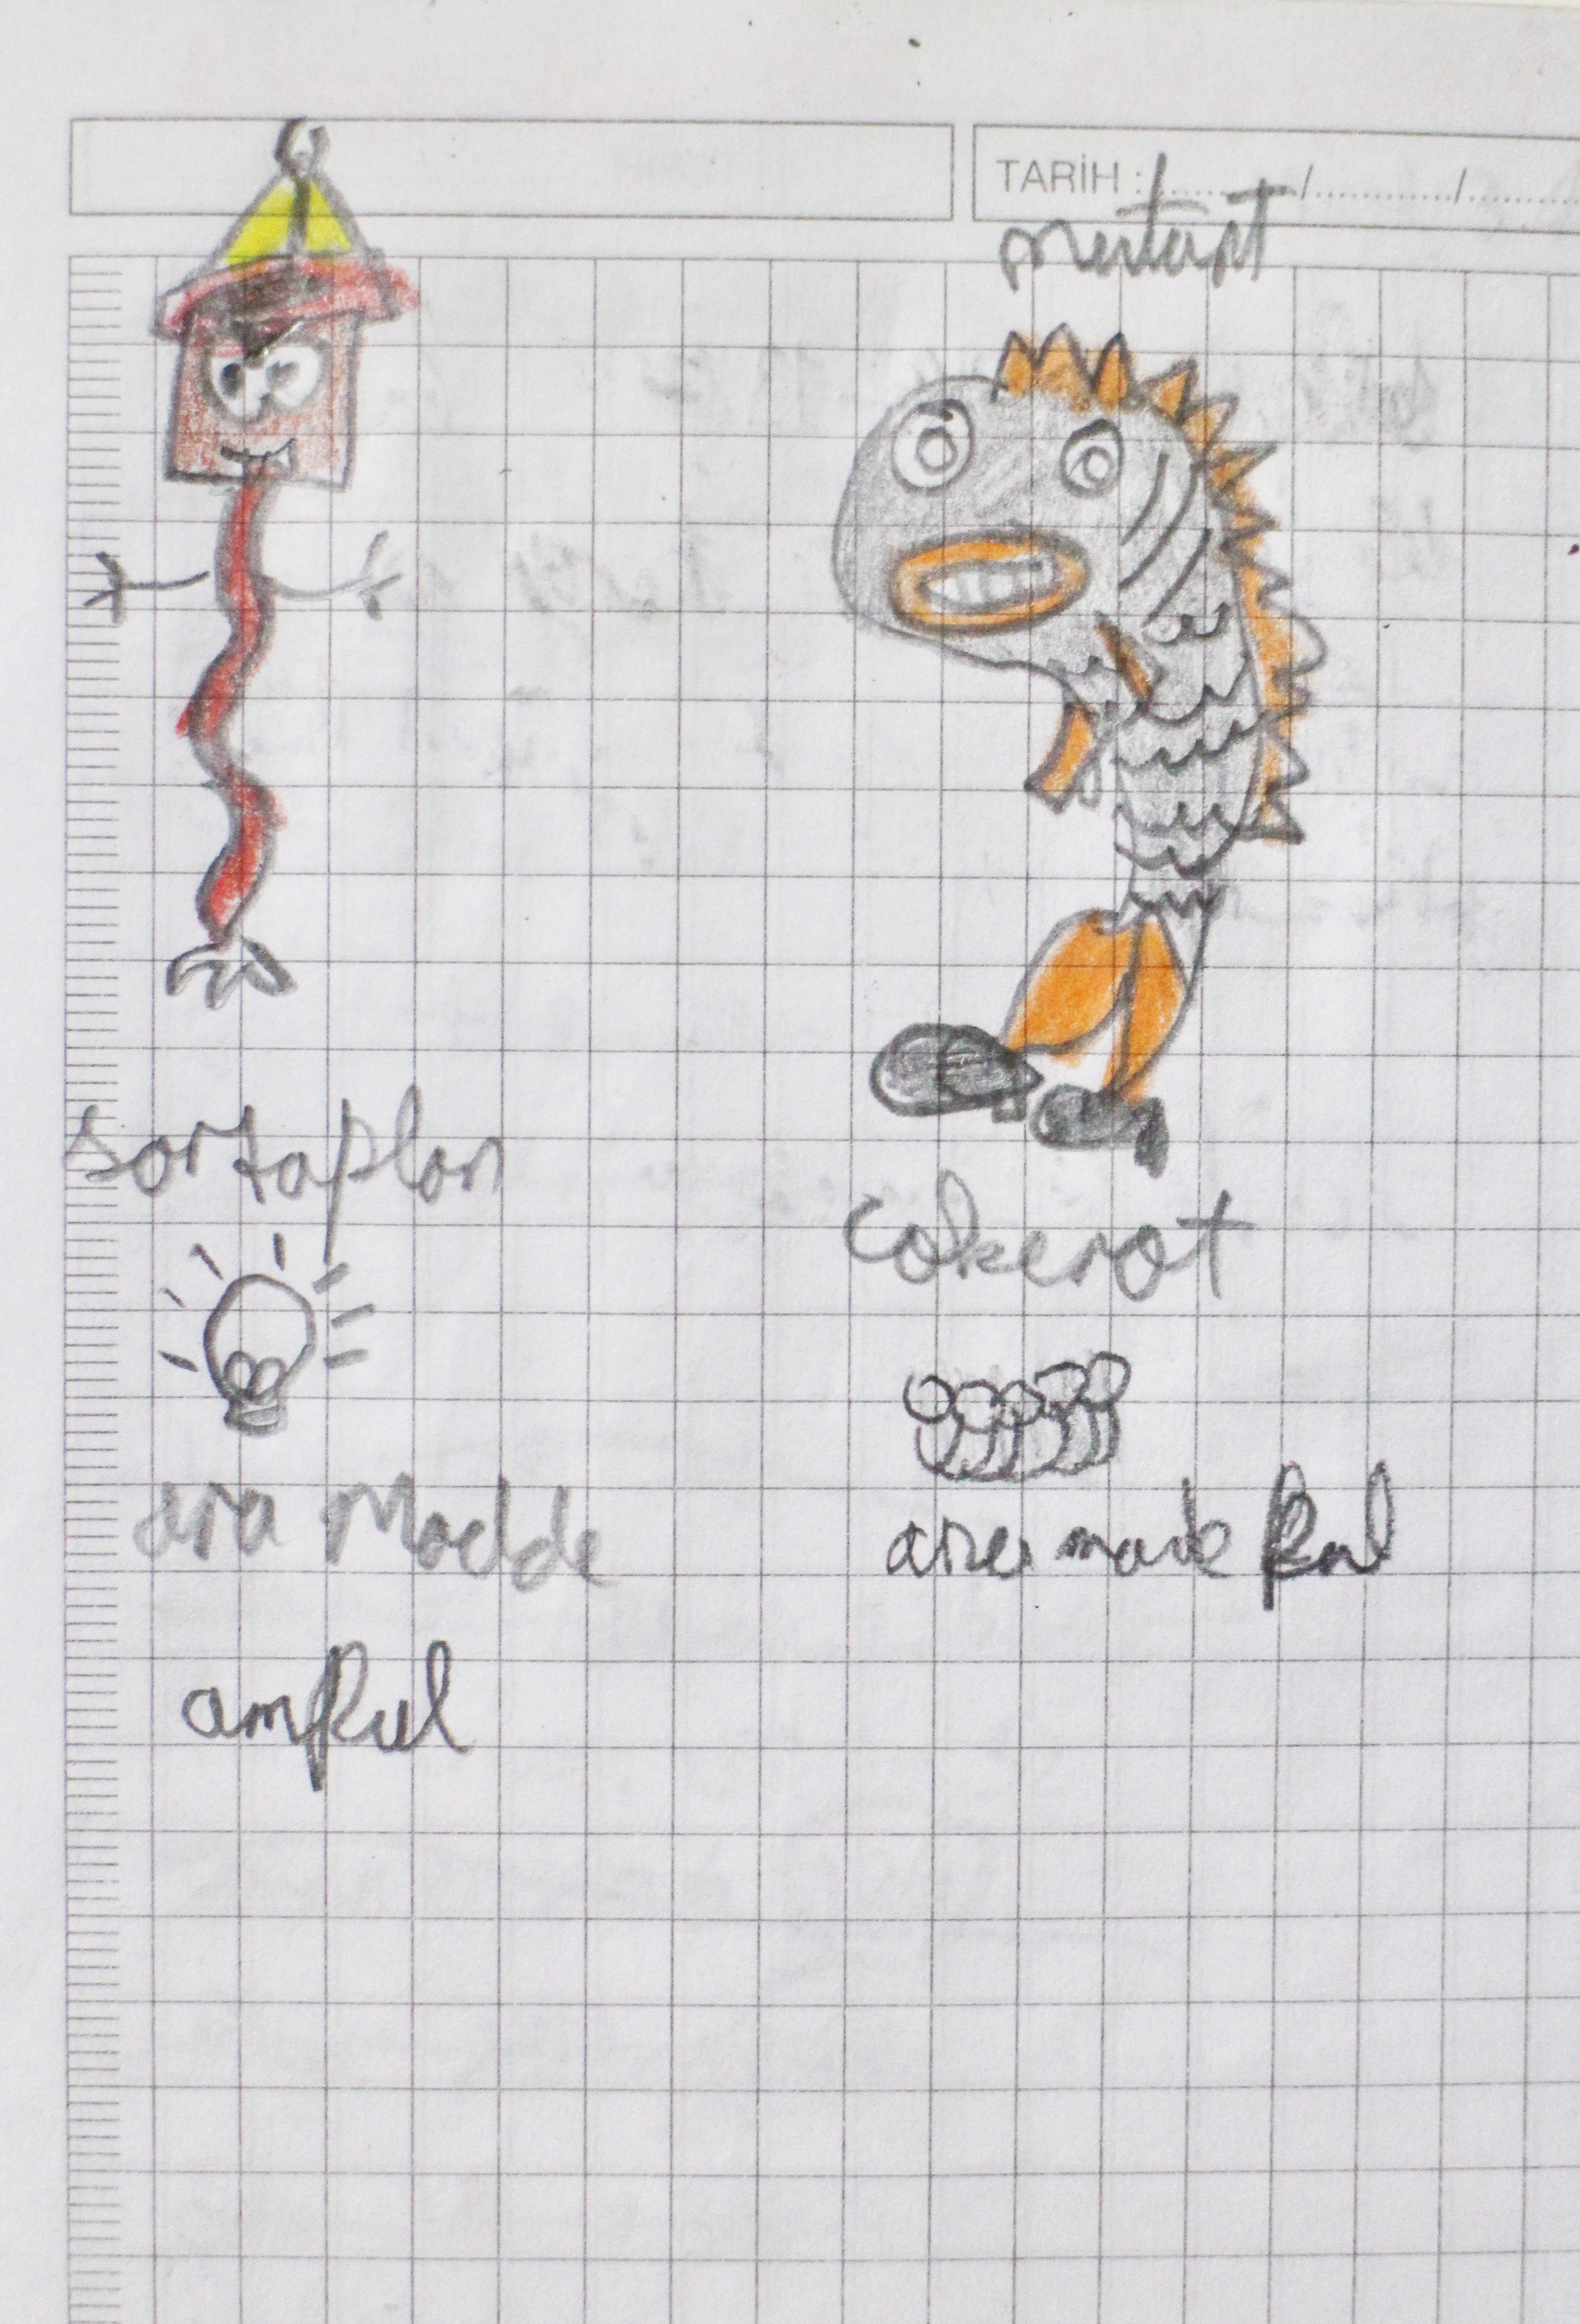 TARİH : ......../............/........
mutant
sortaplan
cokerot
ara Madde
ara made Pul
amPul